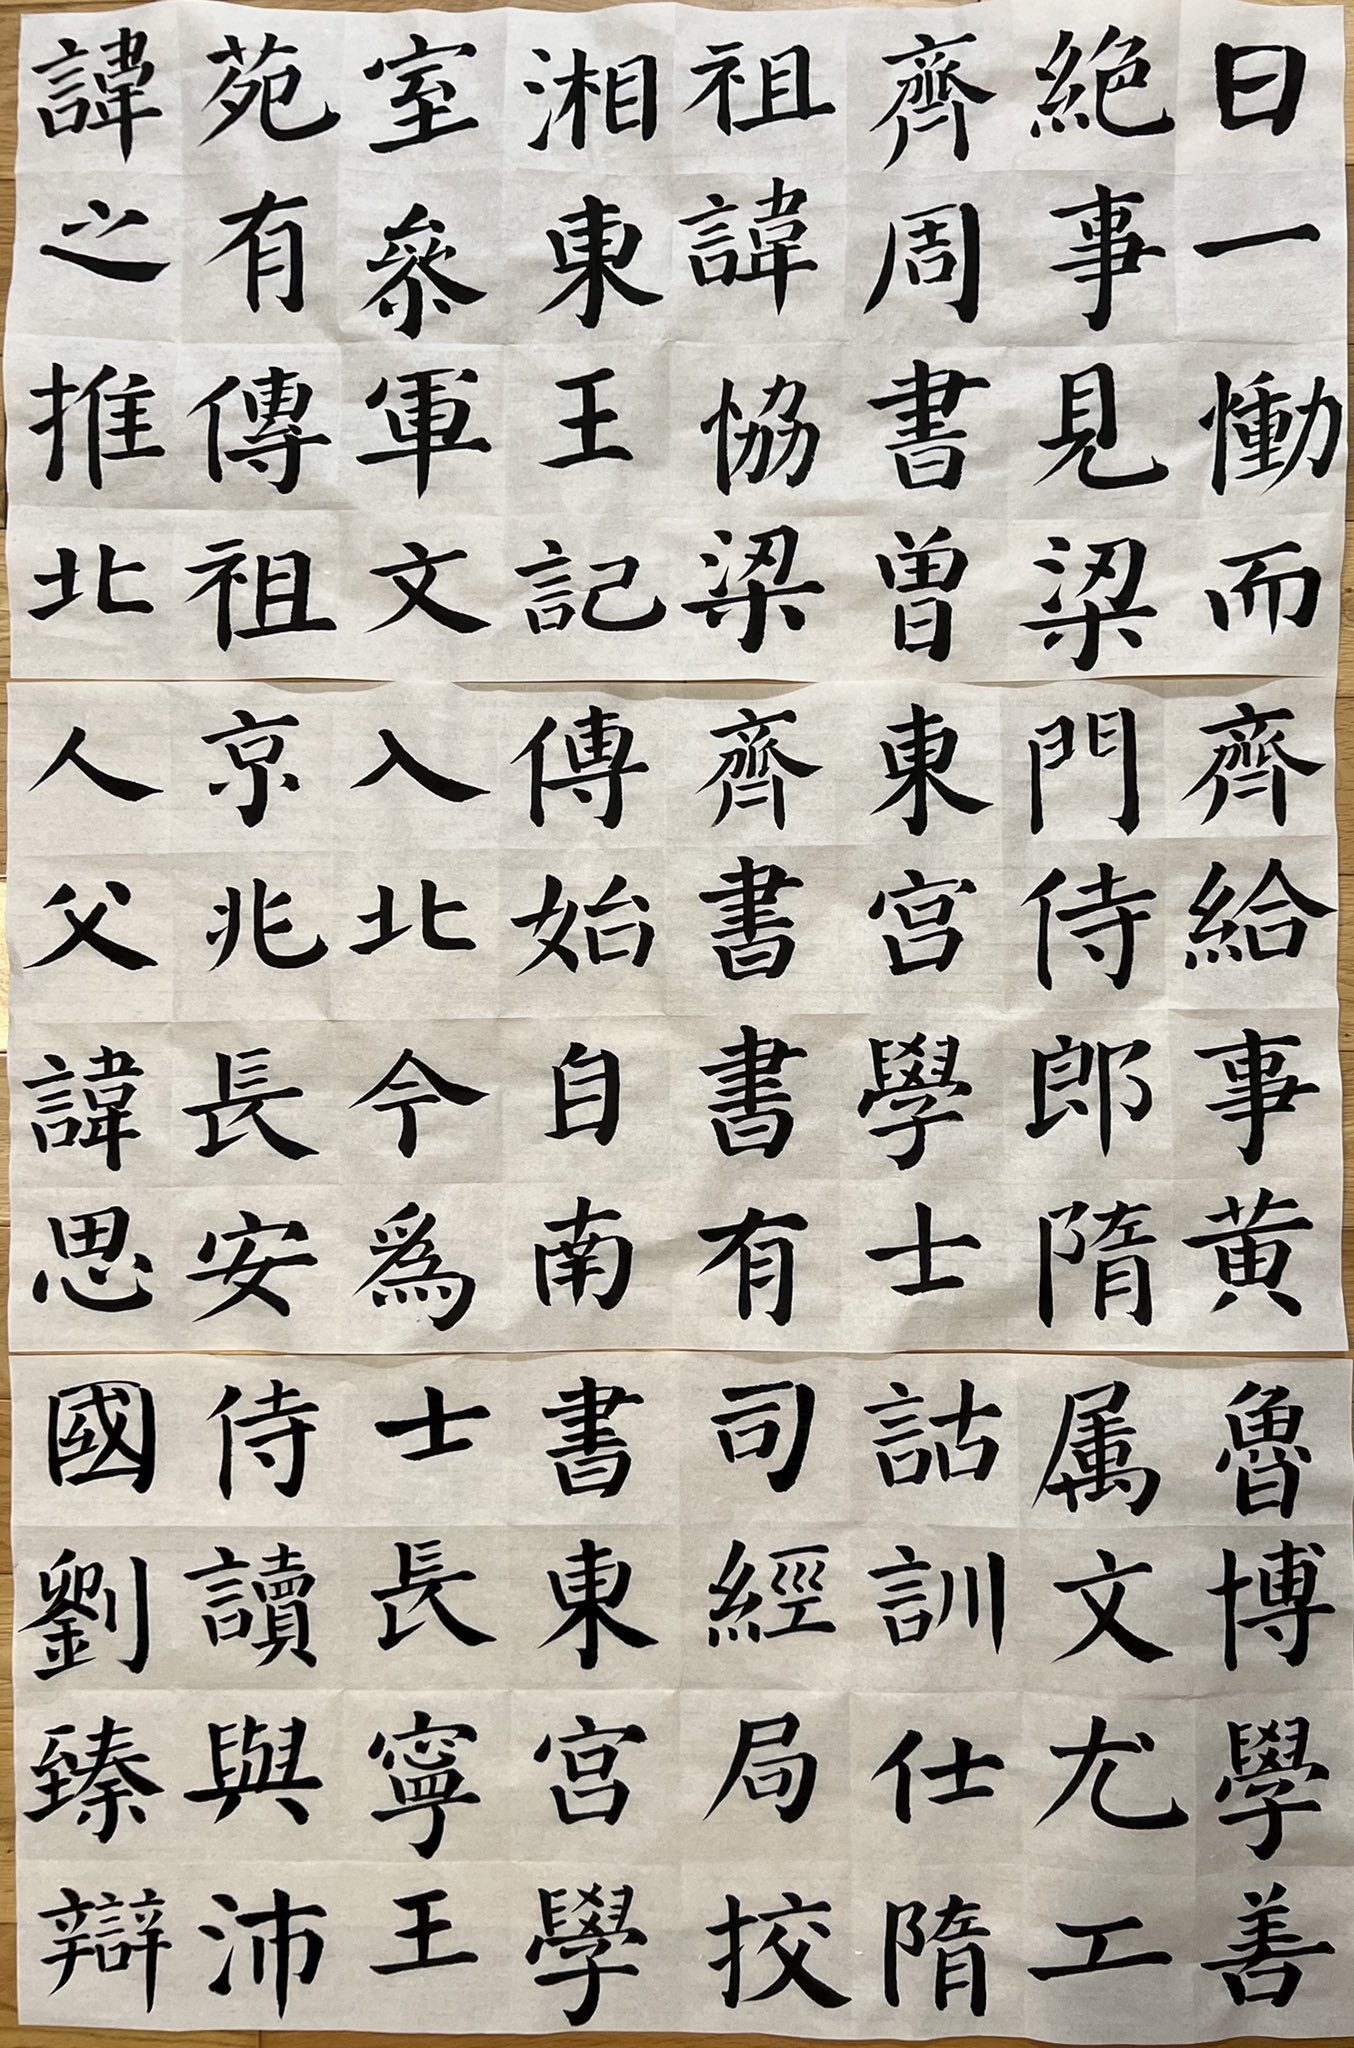 日一慟而
絶事見梁
齊周書曾
祖諱恊梁
湘東王記
室參軍文
苑有傳祖
諱之推北
齊給事黄
門侍郎隋
東宮學士
齊書書有
傳始自南
入北今爲
京兆長安
人父諱思
魯博學善
属文尤工
詁訓仕隋
司經局挍
書東宮學
士長寧王
侍讀與沛
國劉臻辯